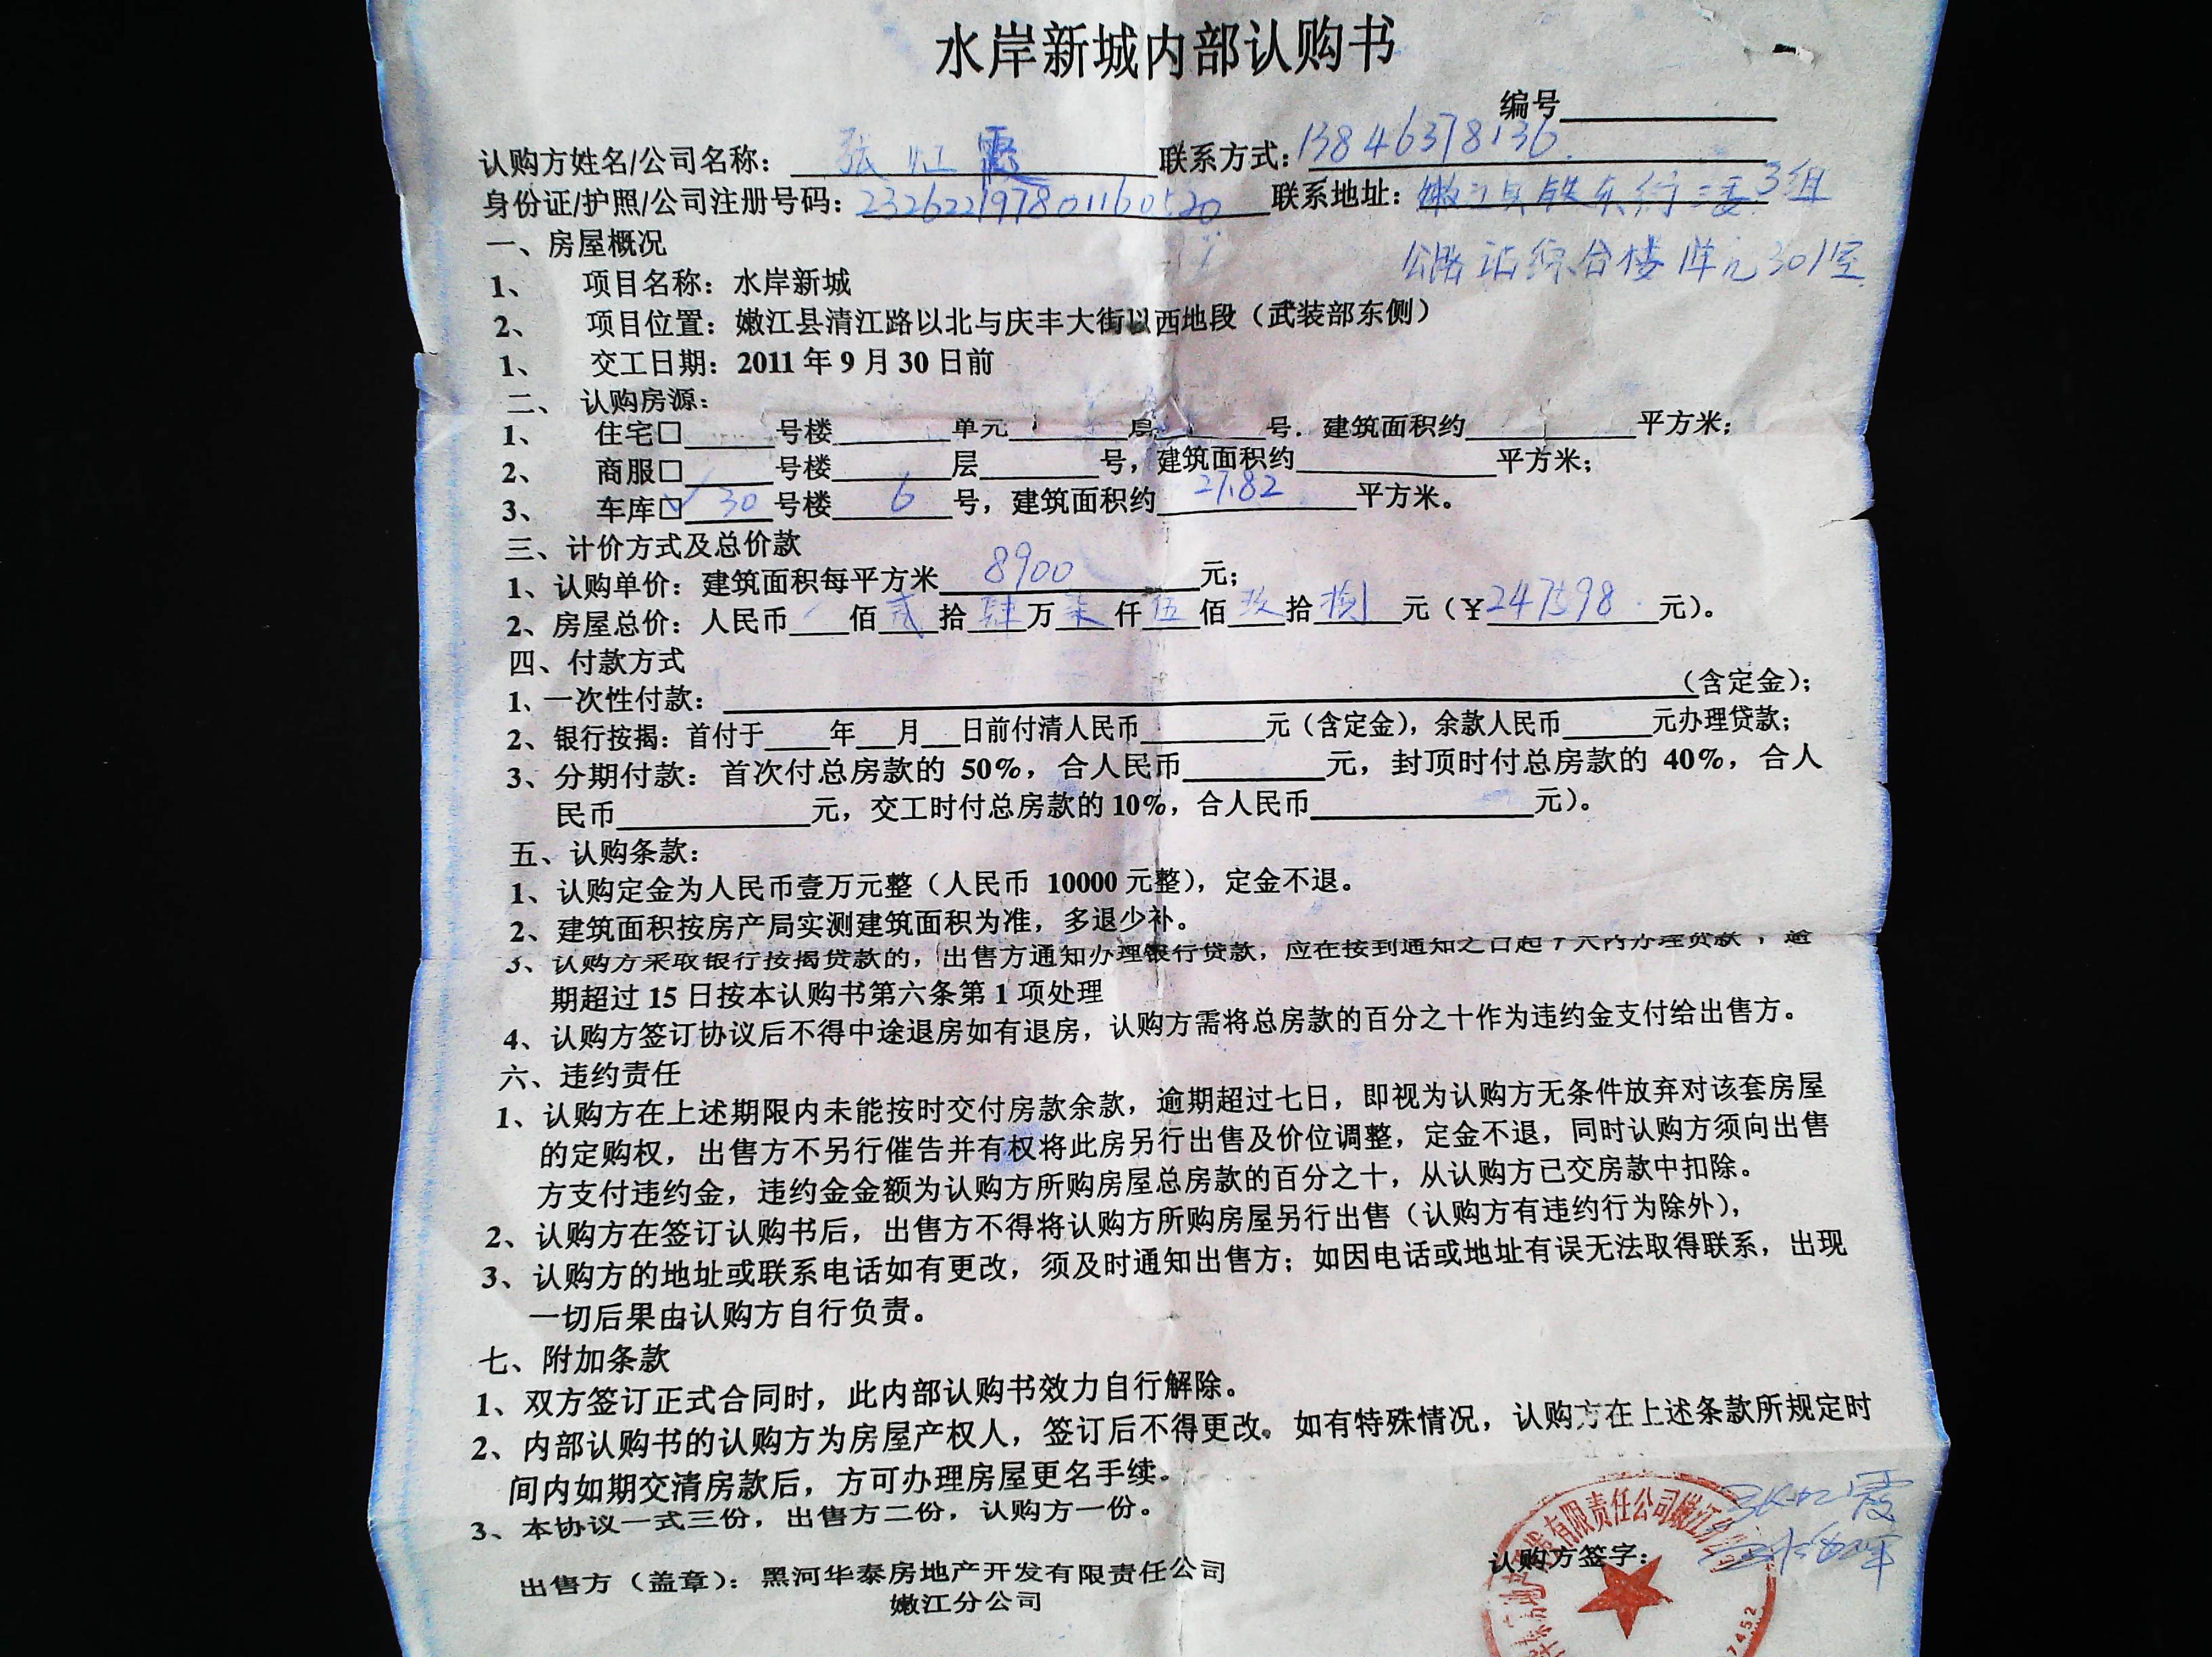 水岸新城内部认购书
编号
认购方姓名/公司名称：张红霞 联系方式：13846378136
身份证/护照/公司注册号码：232622197801160520 联系地址：嫩江县铁东街三委3组
公路站综合楼 单元301室
一、房屋概况
1、 项目名称：水岸新城
2、 项目位置：嫩江县清江路以北与庆丰大街以西地段（武装部东侧）
1、 交工日期：2011年9月30日前
二、认购房源：
1、 住宅□ 号楼 单元 层 号，建筑面积约 平方米；
2、 商服□ 号楼 层 号，建筑面积约 平方米；
3、 车库□✓ 30 号楼 6 号，建筑面积约 27.82 平方米。
三、计价方式及总价款
1、认购单价：建筑面积每平方米 8900 元；
2、房屋总价：人民币 佰贰拾肆万柒仟伍佰玖拾捌元（¥247598元）。
四、付款方式
1、一次性付款： （含定金）；
2、银行按揭：首付于 年 月 日前付清人民币 元（含定金），余款人民币 元办理贷款；
3、分期付款：首次付总房款的 50%，合人民币 元，封顶时付总房款的 40%，合人
民币 元，交工时付总房款的10%，合人民币 元）。
五、认购条款：
1、认购定金为人民币壹万元整（人民币 10000元整），定金不退。
2、建筑面积按房产局实测建筑面积为准，多退少补。
3、认购方采取银行按揭贷款的，出售方通知办理银行贷款，应在接到通知之日起7天内办理贷款，逾
期超过15日按本认购书第六条第1项处理
4、认购方签订协议后不得中途退房如有退房，认购方需将总房款的百分之十作为违约金支付给出售方。
六、违约责任
1、认购方在上述期限内未能按时交付房款余款，逾期超过七日，即视为认购方无条件放弃对该套房屋
的定购权，出售方不另行催告并有权将此房另行出售及价位调整，定金不退，同时认购方须向出售
方支付违约金，违约金金额为认购方所购房屋总房款的百分之十，从认购方已交房款中扣除。
2、认购方在签订认购书后，出售方不得将认购方所购房屋另行出售（认购方有违约行为除外），
3、认购方的地址或联系电话如有更改，须及时通知出售方；如因电话或地址有误无法取得联系，出现
一切后果由认购方自行负责。
七、附加条款
1、双方签订正式合同时，此内部认购书效力自行解除。
2、内部认购书的认购方为房屋产权人，签订后不得更改。如有特殊情况，认购方在上述条款所规定时
间内如期交清房款后，方可办理房屋更名手续。
3、本协议一式三份，出售方二份，认购方一份。
出售方（盖章）：黑河华泰房地产开发有限责任公司
嫩江分公司
认购方签字：张红霞
有限责任公司嫩江分
7452